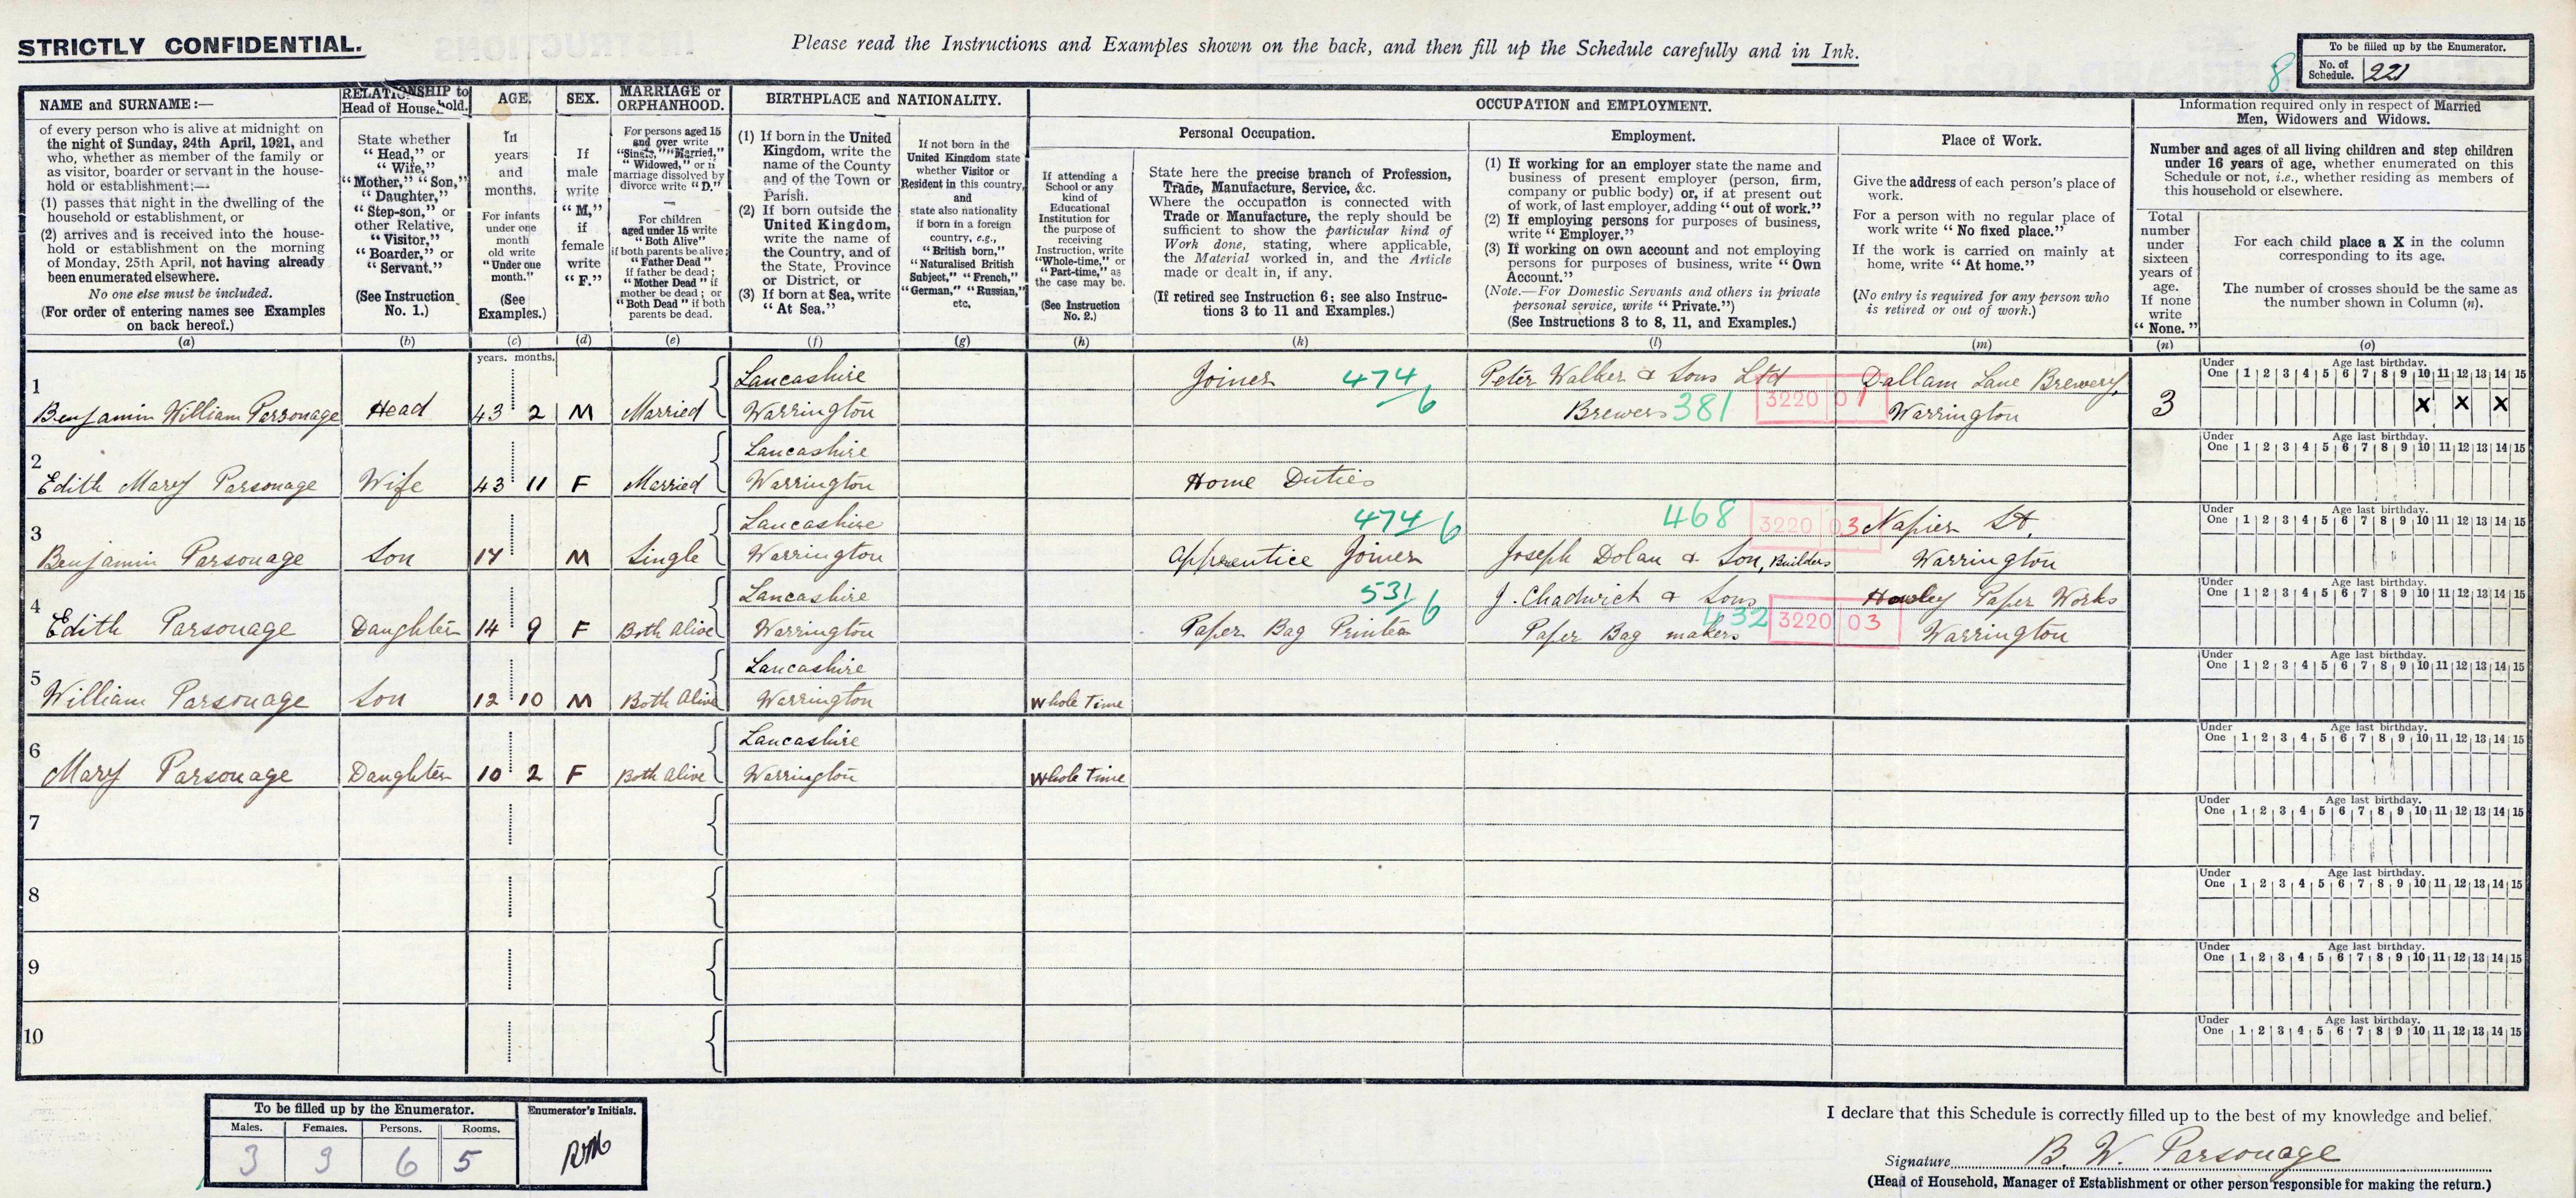 STRICTLY CONFIDENTIAL.
Please read the Instructions and Examples shown on the back, and then fill up the Schedule carefully and in Ink.
8
To be filled up by the Enumerator.
No. of Schedule. 221
NAME and SURNAME:—
of every person who is alive at midnight on
the night of Sunday, 24th April, 1921, and
who, whether as member of the family or
as visitor, boarder or servant in the house-
hold or establishment:—
(1) passes that night in the dwelling of the
household or establishment, or
(2) arrives and is received into the house-
hold or establishment on the morning
of Monday, 25th April, not having already
been enumerated elsewhere.
No one else must be included.
(For order of entering names see Examples
on back hereof.)
(a)
RELATIONSHIP to
Head of Household.
State whether
"Head," or
"Wife,"
"Mother," "Son,"
"Daughter,"
"Step-son," or
other Relative,
"Visitor,"
"Boarder," or
"Servant."
(See Instruction
No. 1.)
(b)
AGE.
In
years
and
months.
For infants
under one
month
old write
"Under one
month."
(See
Examples.)
(c)
SEX.
If
male
write
"M,"
if
female
write
"F."
(d)
MARRIAGE or
ORPHANHOOD.
For persons aged 15
and over write
"Single," "Married,"
"Widowed," or if
marriage dissolved by
divorce write "D."
For children
aged under 15 write
"Both Alive"
if both parents be alive;
"Father Dead"
if father be dead;
"Mother Dead" if
mother be dead; or
"Both Dead" if both
parents be dead.
(e)
BIRTHPLACE and NATIONALITY.
(1) If born in the United
Kingdom, write the
name of the County
and of the Town or
Parish.
(2) If born outside the
United Kingdom,
write the name of
the Country, and of
the State, Province
or District, or
(3) If born at Sea, write
"At Sea."
(f)
If not born in the
United Kingdom state
whether Visitor or
Resident in this country,
and
state also nationality
if born in a foreign
country, e.g.,
"British born,"
"Naturalised British
Subject," "French,"
"German," "Russian,"
etc.
(g)
OCCUPATION and EMPLOYMENT.
If attending a
School or any
kind of
Educational
Institution for
the purpose of
receiving
Instruction, write
"Whole-time," or
"Part-time," as
the case may be.
(See Instruction
No. 2.)
(h)
Personal Occupation.
State here the precise branch of Profession,
Trade, Manufacture, Service, &c.
Where the occupation is connected with
Trade or Manufacture, the reply should be
sufficient to show the particular kind of
Work done, stating, where applicable,
the Material worked in, and the Article
made or dealt in, if any.
(If retired see Instruction 6; see also Instruc-
tions 3 to 11 and Examples.)
(k)
Employment.
(1) If working for an employer state the name and
business of present employer (person, firm,
company or public body) or, if at present out
of work, of last employer, adding "out of work."
(2) If employing persons for purposes of business,
write "Employer."
(3) If working on own account and not employing
persons for purposes of business, write "Own
Account."
(Note.—For Domestic Servants and others in private
personal service, write "Private.")
(See Instructions 3 to 8, 11, and Examples.)
(l)
Place of Work.
Give the address of each person's place of
work.
For a person with no regular place of
work write "No fixed place."
If the work is carried on mainly at
home, write "At home."
(No entry is required for any person who
is retired or out of work.)
(m)
Information required only in respect of Married
Men, Widowers and Widows.
Number and ages of all living children and step children
under 16 years of age, whether enumerated on this
Schedule or not, i.e., whether residing as members of
this household or elsewhere.
Total
number
under
sixteen
years of
age.
If none
write
"None."
(n)
For each child place a X in the column
corresponding to its age.
The number of crosses should be the same as
the number shown in Column (n).
(o)
years. months.
Under One Age last birthday. 1 2 3 4 5 6 7 8 9 10 11 12 13 14 15
1 Lancashire Joiner 474/6 Peter Walker & Sons Ltd Dallam Lane Brewery,
Benjamin William Parsonage Head 43 2 M Married Warrington Brewers 381 3220 01 Warrington 3 X X X
Under One Age last birthday. 1 2 3 4 5 6 7 8 9 10 11 12 13 14 15
2 Lancashire
Edith Mary Parsonage Wife 43 11 F Married Warrington Home Duties
Under One Age last birthday. 1 2 3 4 5 6 7 8 9 10 11 12 13 14 15
3 Lancashire 474/6 468 3220 03 Napier St,
Benjamin Parsonage Son 17 M Single Warrington Apprentice Joiner Joseph Dolan & Son, Builders Warrington
Under One Age last birthday. 1 2 3 4 5 6 7 8 9 10 11 12 13 14 15
4 Lancashire 531/6 J. Chadwick & Sons Howley Paper Works
Edith Parsonage Daughter 14 9 F Both Alive Warrington Paper Bag Printer Paper Bag makers 432 3220 03 Warrington
Under One Age last birthday. 1 2 3 4 5 6 7 8 9 10 11 12 13 14 15
5 Lancashire
William Parsonage Son 12 10 M Both Alive Warrington Whole Time
Under One Age last birthday. 1 2 3 4 5 6 7 8 9 10 11 12 13 14 15
6 Lancashire
Mary Parsonage Daughter 10 2 F Both Alive Warrington Whole Time
Under One Age last birthday. 1 2 3 4 5 6 7 8 9 10 11 12 13 14 15
7
Under One Age last birthday. 1 2 3 4 5 6 7 8 9 10 11 12 13 14 15
8
Under One Age last birthday. 1 2 3 4 5 6 7 8 9 10 11 12 13 14 15
9
Under One Age last birthday. 1 2 3 4 5 6 7 8 9 10 11 12 13 14 15
10
To be filled up by the Enumerator.
Males. Females. Persons. Rooms.
3 3 6 5
Enumerator's Initials.
I declare that this Schedule is correctly filled up to the best of my knowledge and belief.
Signature B. W. Parsonage
(Head of Household, Manager of Establishment or other person responsible for making the return.)